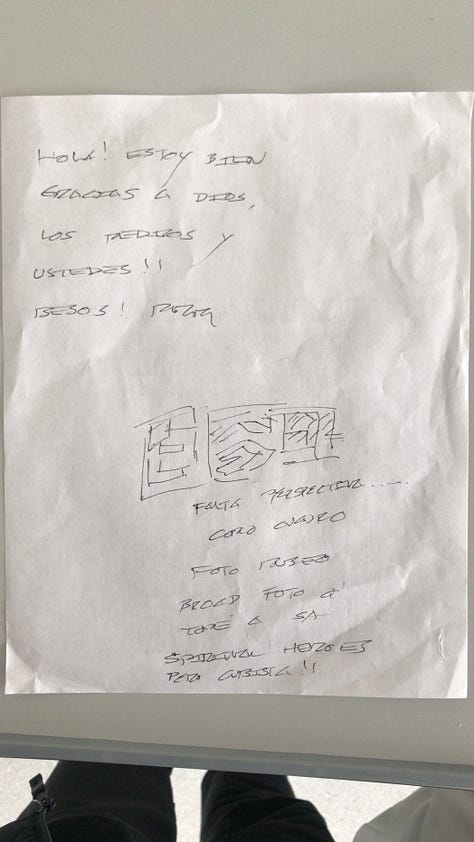 HOLA! ESTOY BIEN
GRACIAS A DIOS,
LOS MEDICOS Y
USTEDES!!
BESOS!
FALTA PERSPECTIVA.....
COMO CUADRO
FOTO MUSEO
BROAD FOTO Q'
TOMÉ A SA
SPIRITUAL HEROES
PERO CUBISTA!!